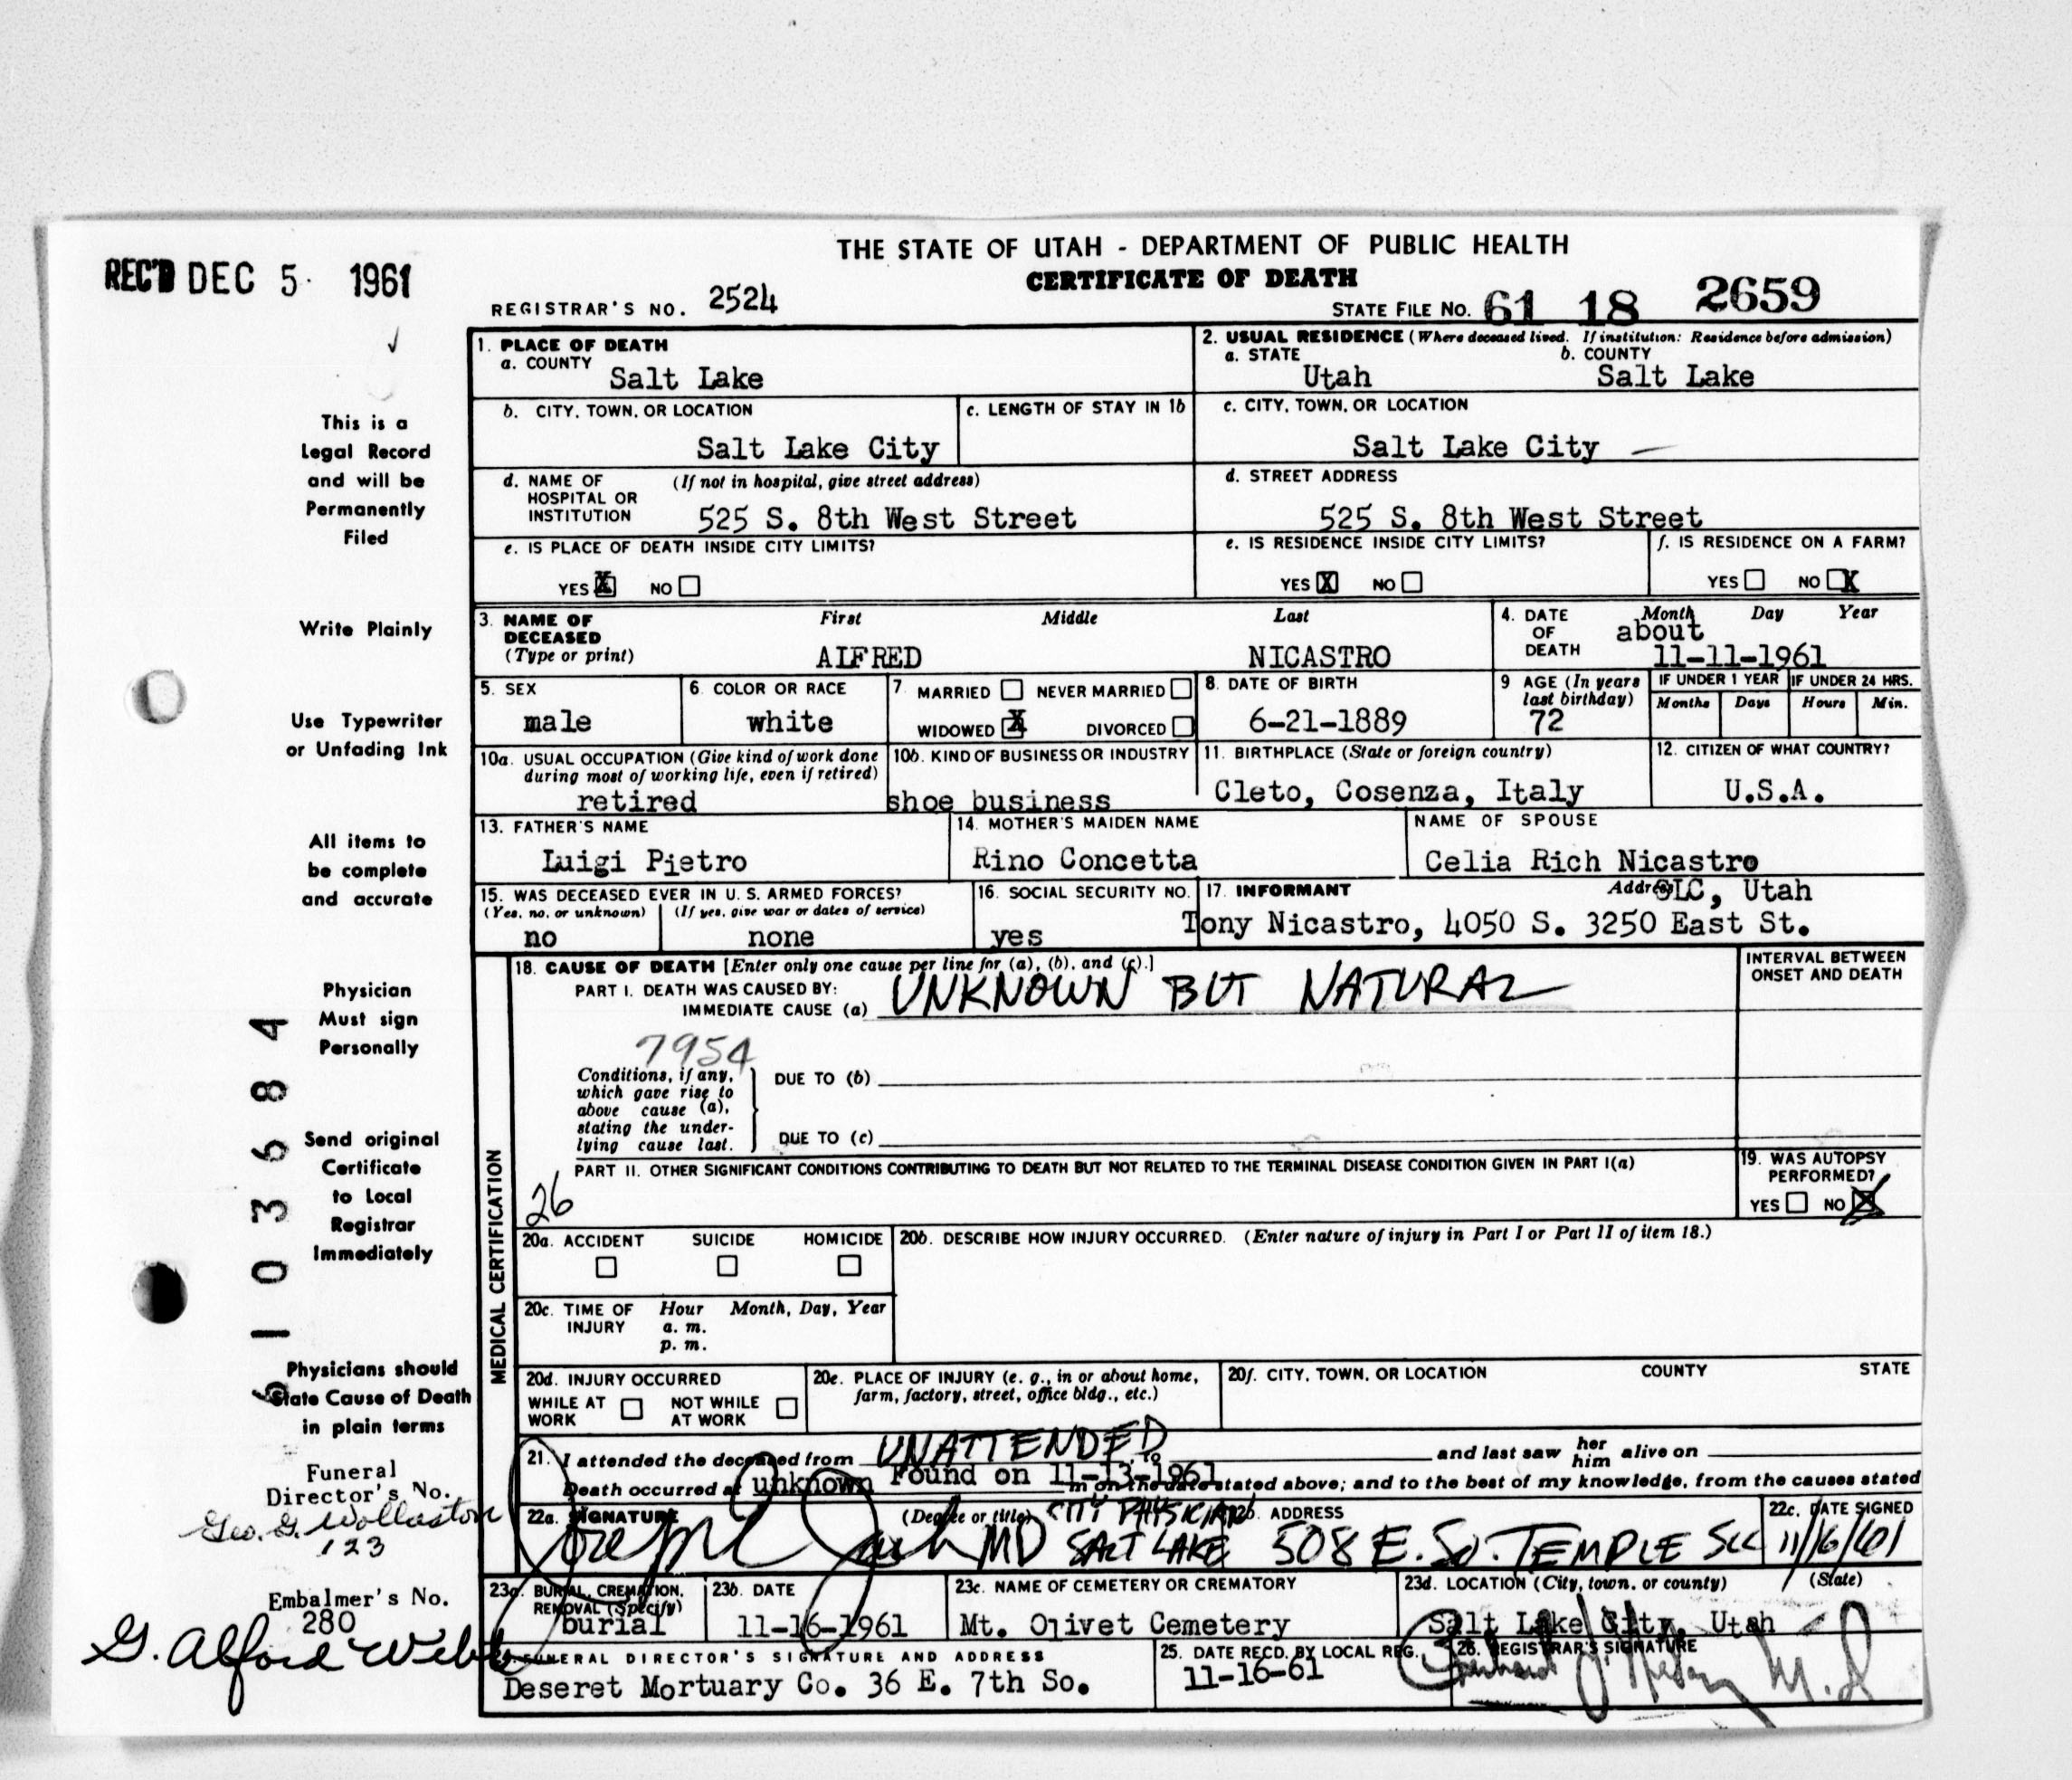 THE STATE OF UTAH - DEPARTMENT OF PUBLIC HEALTH
CERTIFICATE OF DEATH
REC'D DEC 5 1961
REGISTRAR'S NO. 2524
STATE FILE NO. 61 18 2659
This is a
Legal Record
and will be
Permanently
Filed
Write Plainly
Use Typewriter
or Unfading Ink
All items to
be complete
and accurate
Physician
Must sign
Personally
Send original
Certificate
to Local
Registrar
Immediately
Physicians should
State Cause of Death
in plain terms
Funeral
Director's No.
Geo. G. Wollaston
123
Embalmer's No.
280
G. Alford Webb
6103684
1. PLACE OF DEATH
a. COUNTY
Salt Lake
2. USUAL RESIDENCE (Where deceased lived. If institution: Residence before admission)
a. STATE b. COUNTY
Utah Salt Lake
b. CITY, TOWN, OR LOCATION
Salt Lake City
c. LENGTH OF STAY IN 1b
c. CITY, TOWN, OR LOCATION
Salt Lake City
d. NAME OF (If not in hospital, give street address)
HOSPITAL OR
INSTITUTION 525 S. 8th West Street
d. STREET ADDRESS
525 S. 8th West Street
e. IS PLACE OF DEATH INSIDE CITY LIMITS?
YES X NO
e. IS RESIDENCE INSIDE CITY LIMITS?
YES X NO
f. IS RESIDENCE ON A FARM?
YES NO X
3. NAME OF First Middle Last
DECEASED
(Type or print) ALFRED NICASTRO
4. DATE Month Day Year
OF about
DEATH 11-11-1961
5. SEX
male
6. COLOR OR RACE
white
7. MARRIED NEVER MARRIED
WIDOWED X DIVORCED
8. DATE OF BIRTH
6-21-1889
9 AGE (In years
last birthday)
72
IF UNDER 1 YEAR IF UNDER 24 HRS.
Months Days Hours Min.
10a. USUAL OCCUPATION (Give kind of work done
during most of working life, even if retired)
retired
10b. KIND OF BUSINESS OR INDUSTRY
shoe business
11. BIRTHPLACE (State or foreign country)
Cleto, Cosenza, Italy
12. CITIZEN OF WHAT COUNTRY?
U.S.A.
13. FATHER'S NAME
Luigi Pietro
14. MOTHER'S MAIDEN NAME
Rino Concetta
NAME OF SPOUSE
Celia Rich Nicastro
15. WAS DECEASED EVER IN U. S. ARMED FORCES?
(Yes, no, or unknown) (If yes, give war or dates of service)
no none
16. SOCIAL SECURITY NO.
yes
17. INFORMANT Address SLC, Utah
Tony Nicastro, 4050 S. 3250 East St.
MEDICAL CERTIFICATION
18. CAUSE OF DEATH [Enter only one cause per line for (a), (b), and (c).]
PART I. DEATH WAS CAUSED BY:
IMMEDIATE CAUSE (a) UNKNOWN BUT NATURAL
INTERVAL BETWEEN
ONSET AND DEATH
7954
Conditions, if any,
which gave rise to
above cause (a),
stating the under-
lying cause last.
DUE TO (b)
DUE TO (c)
PART II. OTHER SIGNIFICANT CONDITIONS CONTRIBUTING TO DEATH BUT NOT RELATED TO THE TERMINAL DISEASE CONDITION GIVEN IN PART I(a)
26
19. WAS AUTOPSY
PERFORMED?
YES NO X
20a. ACCIDENT SUICIDE HOMICIDE
20b. DESCRIBE HOW INJURY OCCURRED. (Enter nature of injury in Part I or Part II of item 18.)
20c. TIME OF Hour Month, Day, Year
INJURY a. m.
p. m.
20d. INJURY OCCURRED
WHILE AT NOT WHILE
WORK AT WORK
20e. PLACE OF INJURY (e. g., in or about home,
farm, factory, street, office bldg., etc.)
20f. CITY, TOWN, OR LOCATION COUNTY STATE
21. I attended the deceased from UNATTENDED to and last saw her him alive on
Death occurred at unknown Found on 11-13-1961 m on the date stated above; and to the best of my knowledge, from the causes stated
22a. SIGNATURE (Degree or title) CITY PHYSICIAN
MD SALT LAKE
22b. ADDRESS
508 E. SO. TEMPLE SLC
22c. DATE SIGNED
11/16/61
23a. BURIAL, CREMATION,
REMOVAL (Specify)
burial
23b. DATE
11-16-1961
23c. NAME OF CEMETERY OR CREMATORY
Mt. Olivet Cemetery
23d. LOCATION (City, town, or county) (State)
Salt Lake City, Utah
24. FUNERAL DIRECTOR'S SIGNATURE AND ADDRESS
Deseret Mortuary Co. 36 E. 7th So.
25. DATE RECD. BY LOCAL REG.
11-16-61
26. REGISTRAR'S SIGNATURE
M.D